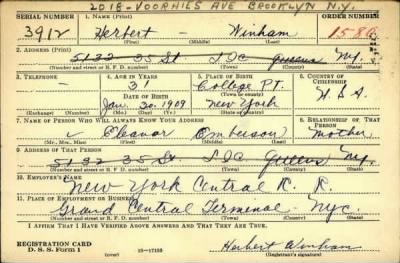 2018-VOORHIES AVE BROOKLYN N.Y.
SERIAL NUMBER 1. NAME (Print) ORDER NUMBER
3912 Herbert - Winham 1580
(First) (Middle) (Last)
2. ADDRESS (Print)
5132 35 St L I C Queens N.Y.
(Number and street or R. F. D. number) (Town) (County) (State)
3. TELEPHONE 4. AGE IN YEARS 5. PLACE OF BIRTH 6. COUNTRY OF CITIZENSHIP
- 31 College Pt.
DATE OF BIRTH (Town or county)
Jan. 30. 1909 New York U.S.A
(Exchange) (Number) (Mo.) (Day) (Yr.) (State or country)
7. NAME OF PERSON WHO WILL ALWAYS KNOW YOUR ADDRESS 8. RELATIONSHIP OF THAT PERSON
Eleanor Omberson Mother
(Mr., Mrs., Miss) (First) (Middle) (Last)
9. ADDRESS OF THAT PERSON
5132 35 St. L I C Queens N.Y.
(Number and street or R. F. D. number) (Town) (County) (State)
10. EMPLOYER'S NAME
New York Central R. R.
11. PLACE OF EMPLOYMENT OR BUSINESS
Grand Central Terminal - NYC.
(Number and street or R. F. D. number) (Town) (County) (State)
I AFFIRM THAT I HAVE VERIFIED ABOVE ANSWERS AND THAT THEY ARE TRUE.
REGISTRATION CARD
D. S. S. Form 1 (over) 16-17105 Herbert Winham
(Registrant's signature)